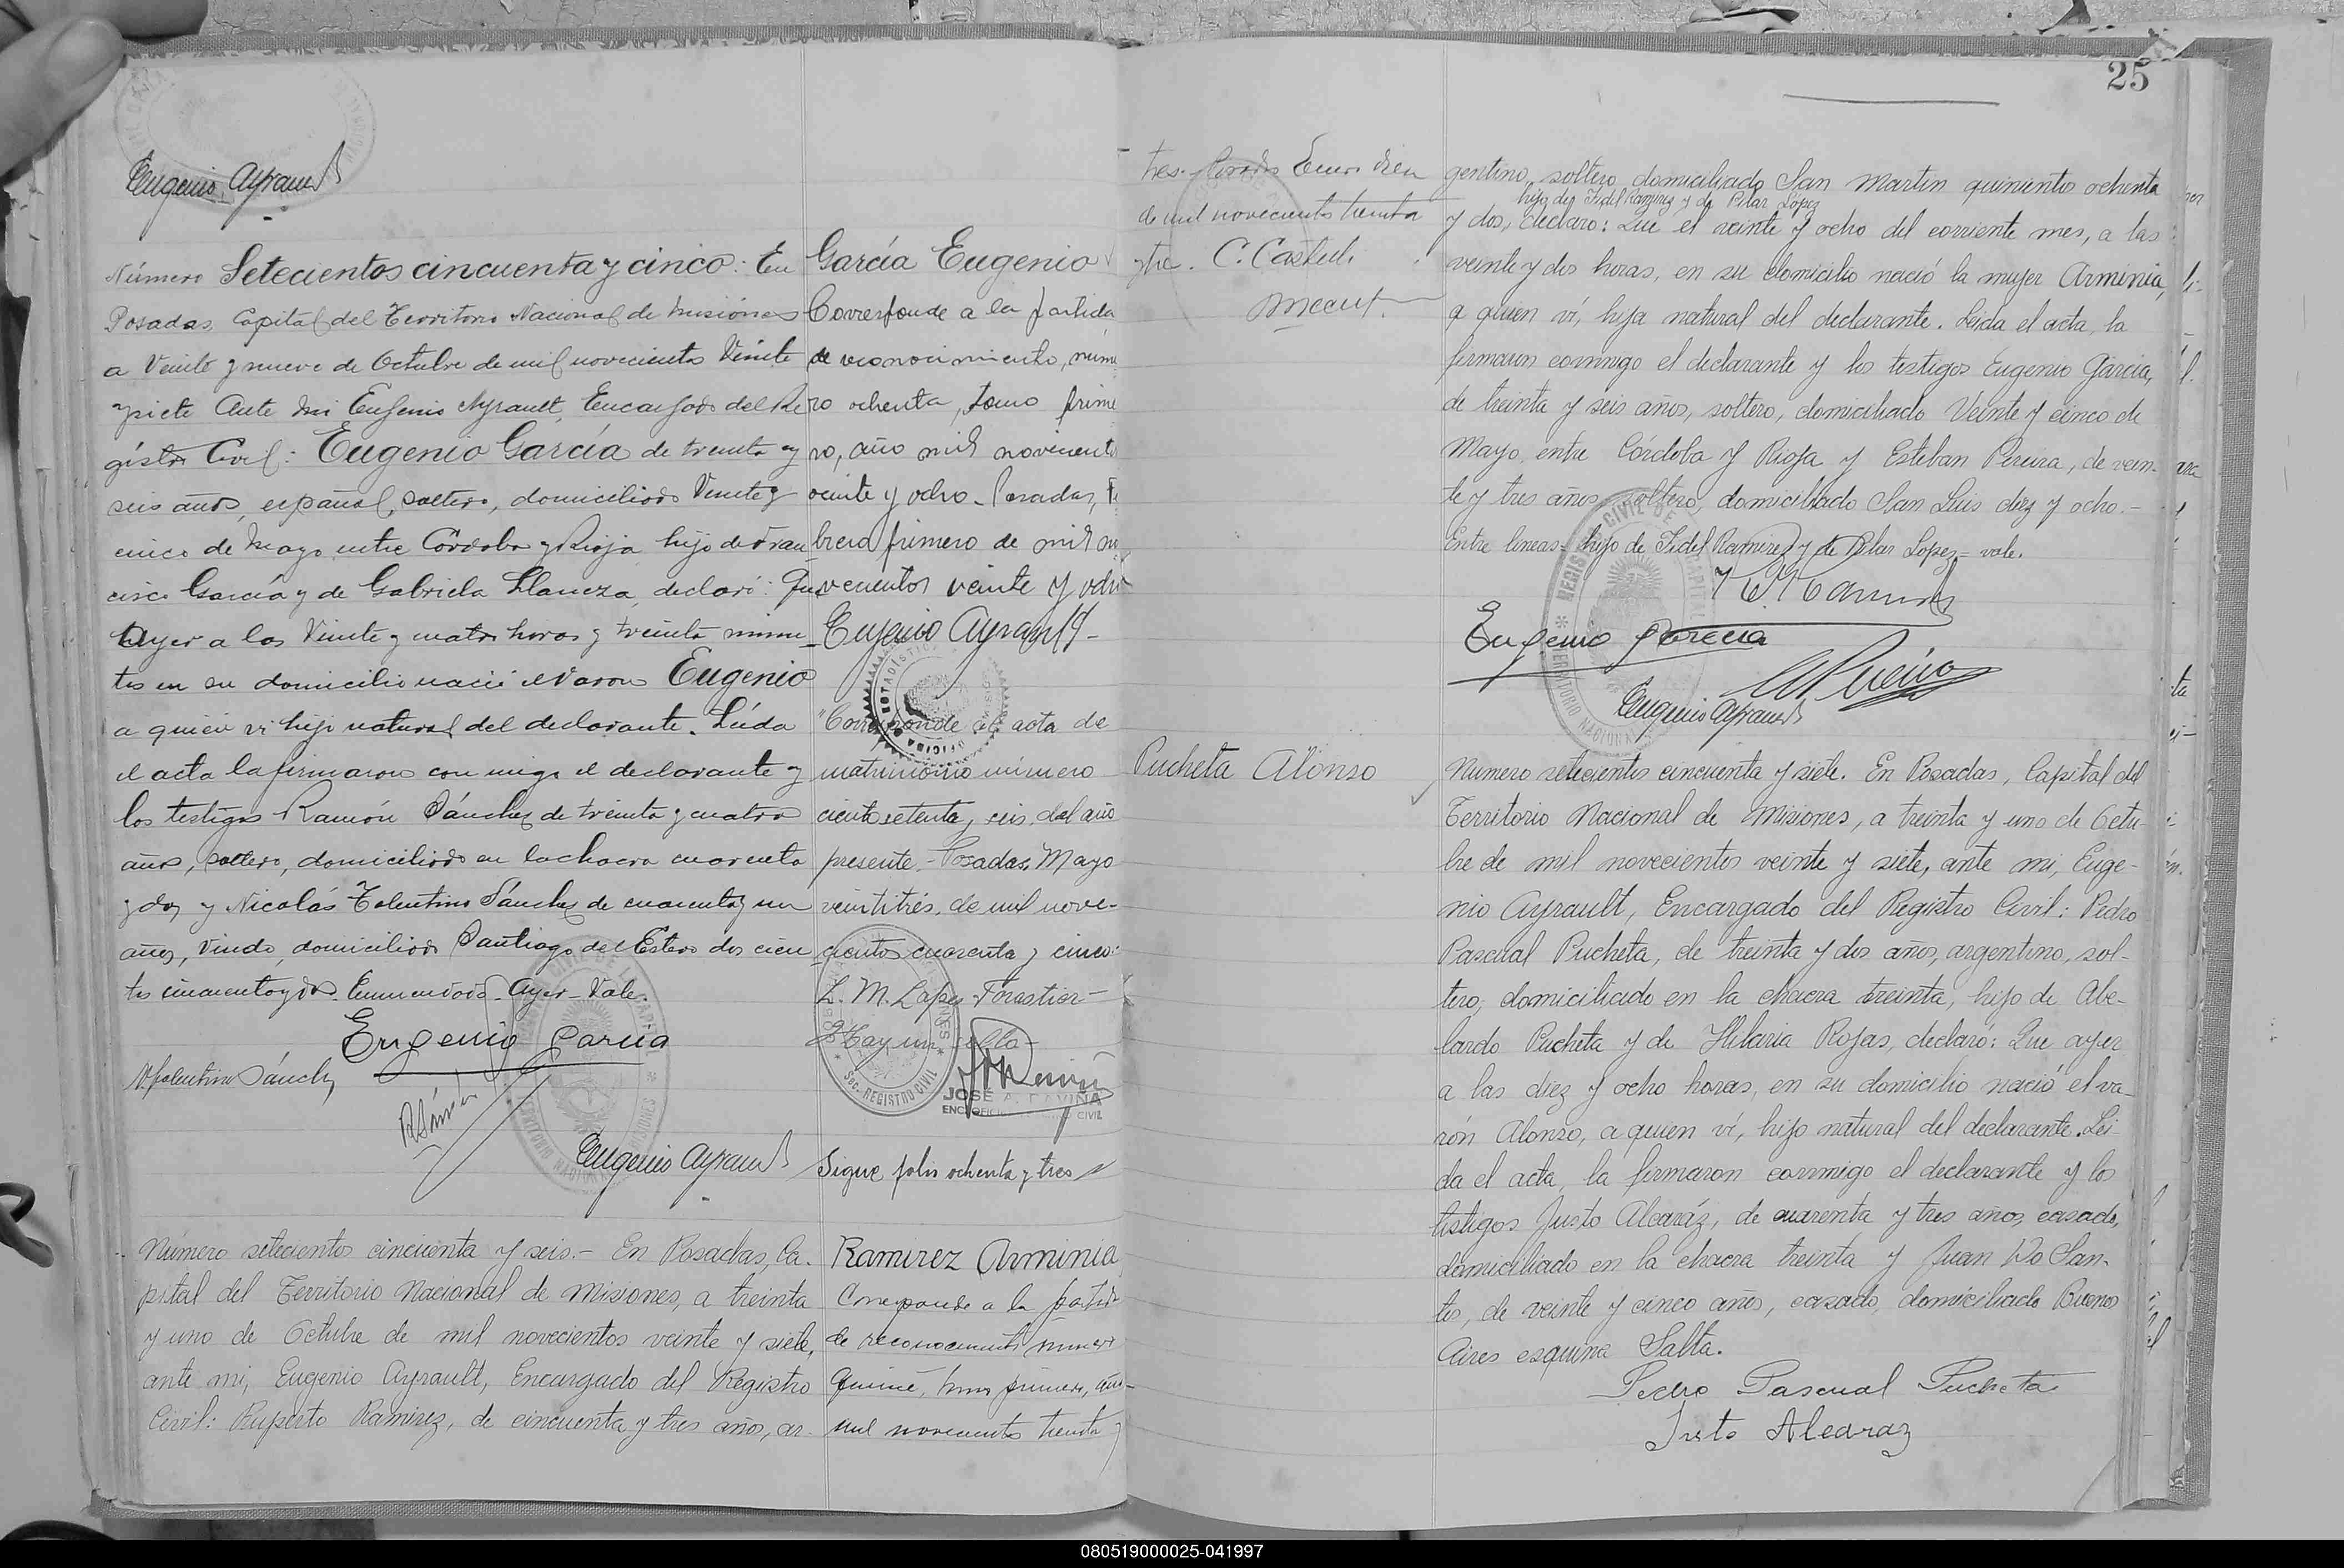 Eugenio Ayrault
Número Setecientos cincuenta y cinco: En
Posadas, Capital del Territorio Nacional de Misiones
a Veinte y nueve de Octubre de mil novecientos Veinte
y siete Ante mi Eugenio Ayrault, Encargado del Re
gistro Civil: Eugenio García de treinta y
seis años, español, soltero, domiciliado Veinte y
cinco de Mayo entre Córdoba y Rioja hijo de Fran
cisco García y de Gabriela Llaneza, declaró: Que
Ayer a las Veinte y cuatro horas y treinta minu
tos en su domicilio nació el varon Eugenio
a quien vi hijo natural del declarante. Leida
el acta la firmaron con migo el declarante y
los testigos Ramón Sánchez de treinta y cuatro
años, soltero, domiciliado en la chacra cuarenta
y dos y Nicolás Tolentino Sánchez de cuarenta y un
años, Viudo, domiciliado Santiago del Estero dos cien
tos cincuenta y dos. Enmendado - Ayer - Vale.
Eugenio Garcia
N Tolentino Sánchez
Eugenio Ayrault
García Eugenio
Corresponde a la partida
de reconocimiento, núme
ro ochenta, tomo prime
ro, año mil novecient
veinte y ocho - Posadas, Fe
brero primero de mil no
vecientos veinte y ocho
Eugenio Ayrault -
"Corresponde al acta de
matrimonio número
ciento setenta y seis, del año
presente - Posadas, Mayo
veintitrés, de mil nove-
cientos cuarenta y cinco:
L. M. Forastier -
JOSÉ A. DAVIÑA
Sigue folio ochenta y tres
Número setecientos cincuenta y seis.- En Posadas, Ca-
pital del Territorio Nacional de Misiones, a treinta
y uno de Octubre de mil novecientos veinte y siete,
ante mi, Eugenio Ayrault, Encargado del Registro
Civil: Ruperto Ramirez, de cincuenta y tres años, ar-
Ramirez Arminia
Corresponde a la partida
de reconocimiento número
quince, tomo primero, año
mil novecientos treinta y
25
tres. Posadas Enero diez
de mil novecientos treinta
y tres. C. Castedi
gentino, soltero, domiciliado San Martin quinientos ochenta
hijo de Fidel Ramirez y de Pilar Lopez
y dos, declaro: Que el veinte y ocho del corriente mes, a las
veinte y dos horas, en su domicilio nació la mujer Arminia,
a quien ví, hija natural del declarante. Leida el acta, la
firmaron conmigo el declarante y los testigos Eugenio García,
de treinta y seis años, soltero, domiciliado Veinte y cinco de
Mayo, entre Córdoba y Rioja y Esteban Pereira, de vein-
te y tres años, soltero, domiciliado San Luis diez y ocho.-
Entre lineas: hijo de Fidel Ramirez y de Pilar Lopez - vale.
R. Ramirez
Eugenio Garcia
Eugenio Ayrault
Pucheta Alonso
Numero setecientos cincuenta y siete. En Posadas, Capital del
Territorio Nacional de Misiones, a treinta y uno de Octu-
bre de mil novecientos veinte y siete, ante mi, Euge-
nio Ayrault, Encargado del Registro Civil: Pedro
Pascual Pucheta, de treinta y dos años, argentino, sol-
tero, domiciliado en la chacra treinta, hijo de Abe-
lardo Pucheta y de Hilaria Rojas, declaró: Que ayer
a las diez y ocho horas, en su domicilio nació el va-
rón Alonso, a quien ví, hijo natural del declarante. Lei-
da el acta, la firmaron conmigo el declarante y los
testigos Justo Alcaráz, de cuarenta y tres años, casado,
domiciliado en la chacra treinta y Juan Do San-
tos, de veinte y cinco años, casado, domiciliado Buenos
Aires esquina Salta.
Pedro Pascual Pucheta
Justo Alcaraz
080519000025-041997